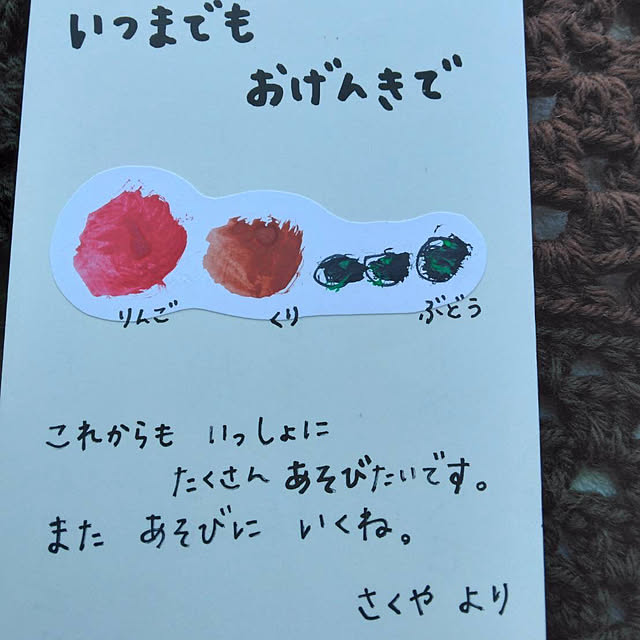 いつまでも
おげんきで
りんご くり ぶどう
これからも いっしょに
たくさん あそびたいです。
また あそびに いくね。
さくや より